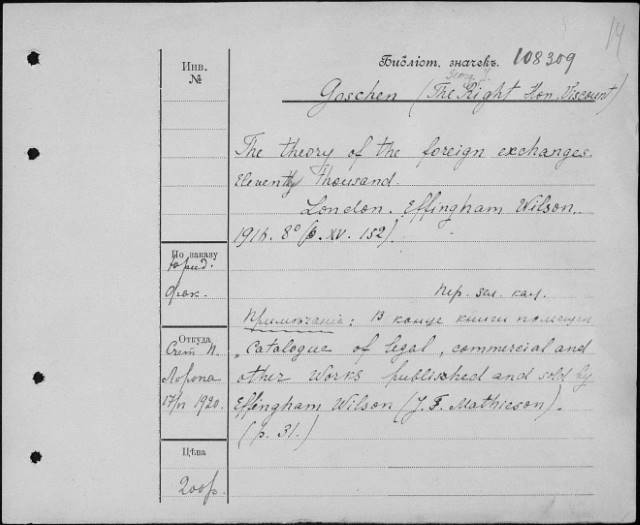 14
Библіот. значекъ. 108309
Инв.
№
Goschen (The Right Hon. Viscount)
The theory of the foreign exchanges.
Eleventh Thousand.
London. Effingham Wilson.
8° (p. XV. 152).
По заказу
Юрид.
фак.
Пер. зел. кол.
Примѣчаніе: В конце книги помещен
Откуда
"Catalogue of legal, commercial and
other Works published and sold by
1920.
Effingham Wilson (J. F. Mathieson).
(p. 31.)
Цѣна
200р.